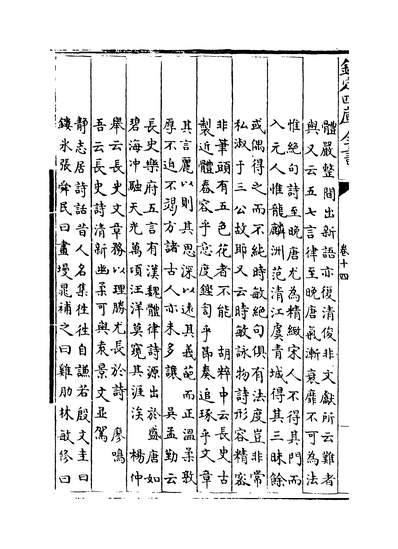 欽定四庫全書
卷十四
體嚴整間出新語亦復清俊非文獻所云難者
與又云五七言律至晚唐氣漸衰靡不可為法
惟絕句詩至晚唐尤為精緻宋人不得其門而
入元人惟龍麟洲范清江虞青城得其三昧餘
或偶得之而不純時敏絕句俱有法度豈非常
私淑于三公故耶又云時敏詠物詩形容精密
非筆頭有五色花者不能 胡粹中云長史古
製近體舂容乎態度鏗訇乎節奏追琢乎文章
其言麗以則其思深以遠其義葩而正温柔敦
厚不迫不竭方諸古人亦未多讓 吳孟勤云
長史樂府五言有漢魏體律詩源出於盛唐如
碧海冲融天光萬頃汪洋莫窺其涯涘 楊仲
舉云長史文章務以理勝尤長於詩 廖鳴
吾云長史詩清新幽柔可與袁景文並駕
靜志居詩話昔人名集徃徃自謙若殷文圭曰
鏤氷張舜民曰畫墁晁補之曰雞肋林敏修曰